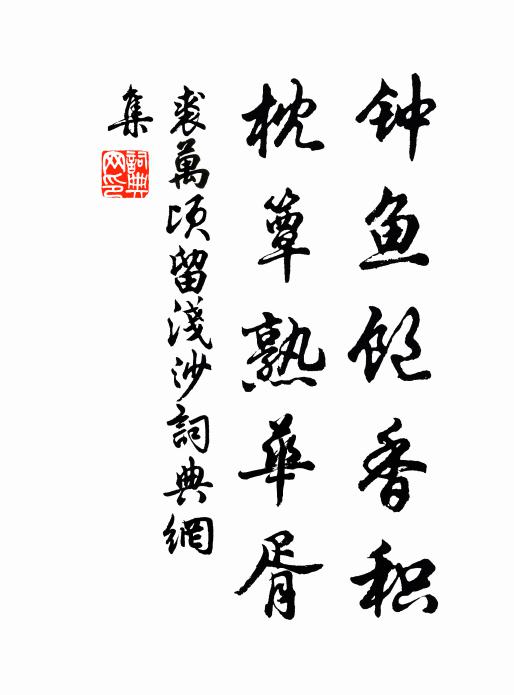 钟鱼饱香积
枕簟熟華胥
裘萬顷留淺沙詞典網
集
詞典
网印